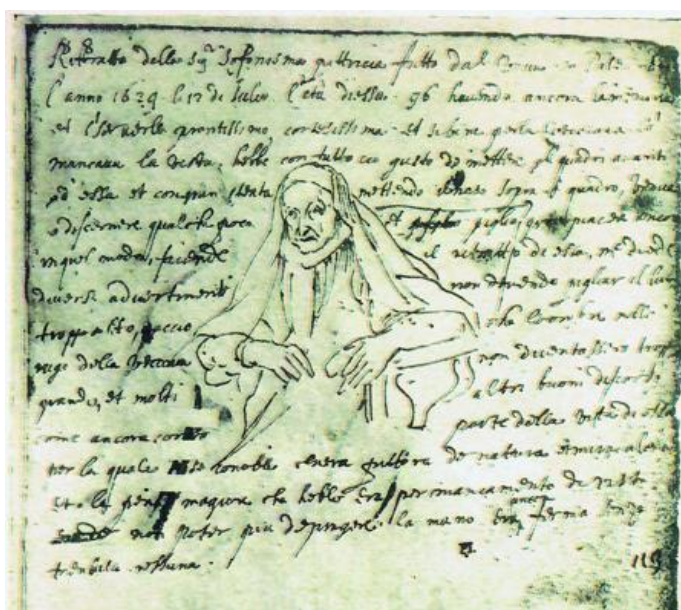 Rittratto della Sigra Sofonisma pittricia fatto dal vivo in Palermo
l'anno 1629 li 12 di Julio l'età di essa 96 havendo ancora la memoria
et il cervello prontissimo, cortesissima et sebine per la vecciaia
mancava la vista, hebbe con tutto cio gusto de mettere gli quadri avanti
ad essa et con gran stenta mettendo il naso sopra il quadro, venne
a discernere qualche poca et piglio gran piacere ancora
in quel modo, faciendo il ritratto di essa, mi diede
diversi advertimenti non dovendo pigliar il lume
troppo alto, accio che l'ombre nelle
ruge della vecciaia non diventassero troppo
grande, et molti altri buoni discorsi
come ancora conto parte della vita di essa
per la quale si conobbe ch'era pittora de natura
et la pena magiore che hebbe era per mancamento di vista
non poter piu depingere la mano era ancora ferma senza
tremula nessuna.
115